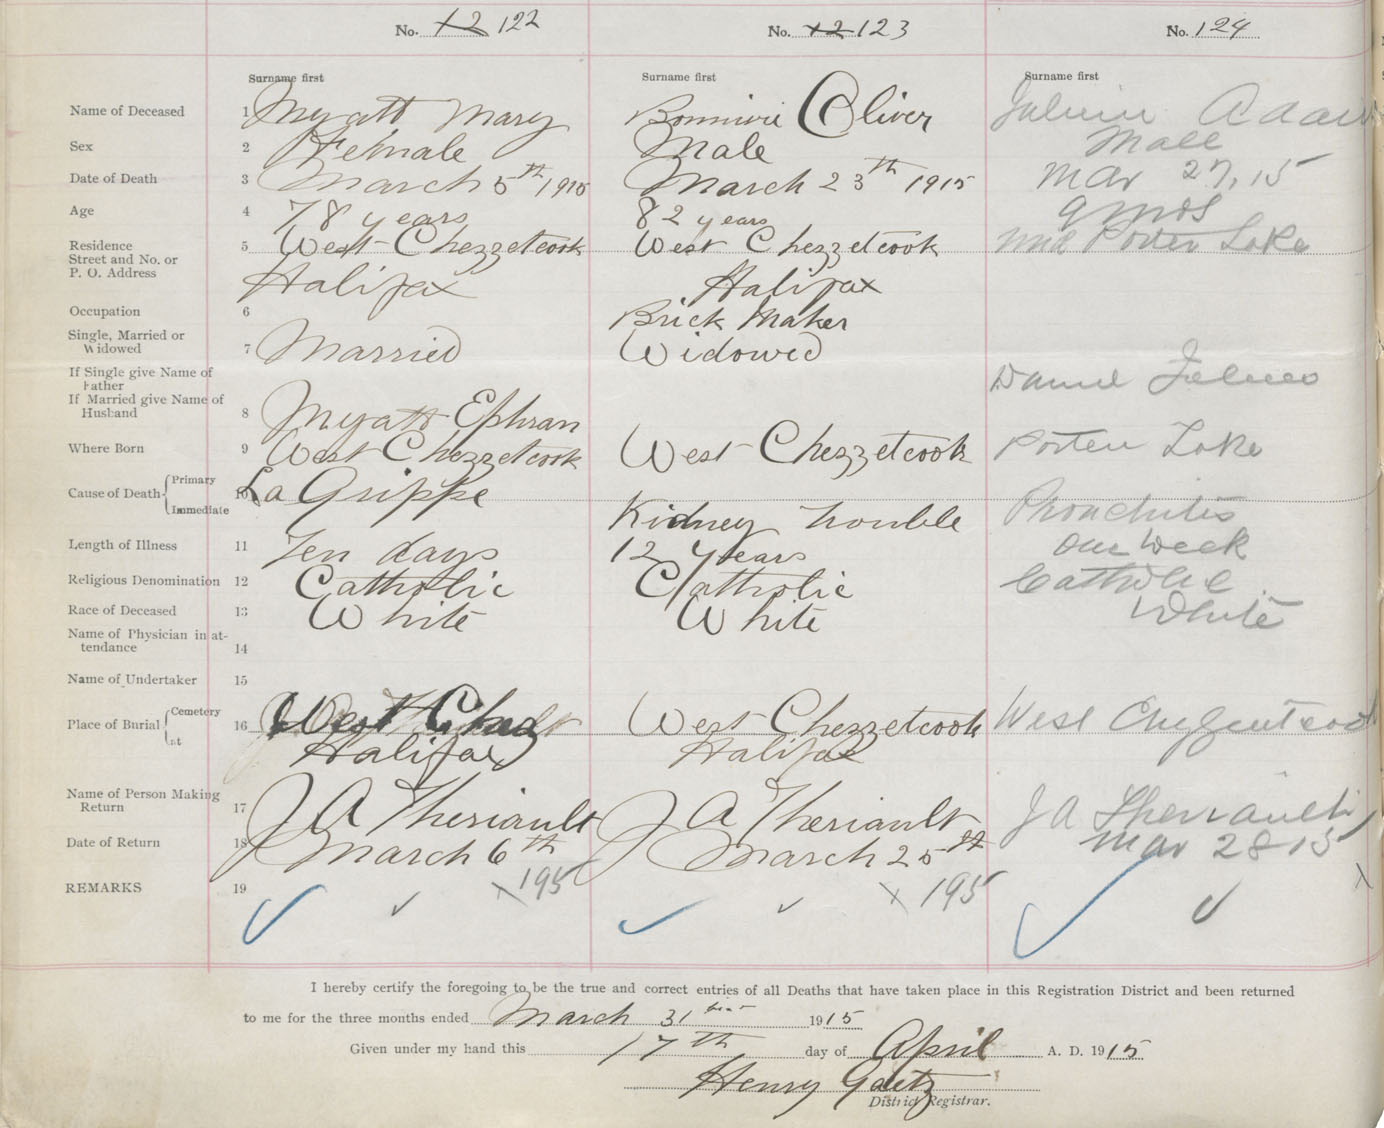 No. 12 122 No. 12 123 No. 124
Surname first Surname first Surname first
Name of Deceased 1 Myatt Mary Bonnivie Oliver Julien Adam
Sex 2 Female Male Male
Date of Death 3 March 5th 1915 March 23th 1915 Mar 27, 15
Age 4 78 years 82 years 9 mos
Residence 5 West Chezzetcook West Chezzetcook Porter Lake
Street and No. or
P. O. Address Halifax Halifax
Occupation 6 Brick Maker
Single, Married or
Widowed 7 Married Widowed
If Single give Name of
Father Daniel
If Married give Name of
Husband 8 Myatt Ephran
Where Born 9 West Chezzetcook West Chezzetcook Porter Lake
Cause of Death Primary
10 La Grippe
Immediate Kidney trouble Bronchitis
Length of Illness 11 Ten days 12 years one week
Religious Denomination 12 Catholic Catholic Catholic
Race of Deceased 13 White White White
Name of Physician in at-
tendance 14
Name of Undertaker 15
Place of Burial Cemetery
16 West Chez West Chezzetcook West
at Halifax Halifax
Name of Person Making
Return 17 J A Theriault J A Theriault J A Therriault
Date of Return 18 March 6th March 25th Mar 28 15
REMARKS 19 x 195 x 195 x
I hereby certify the foregoing to be the true and correct entries of all Deaths that have taken place in this Registration District and been returned
to me for the three months ended March 31 1915
Given under my hand this 17th day of April A. D. 1915
Henry Gaetz
District Registrar.